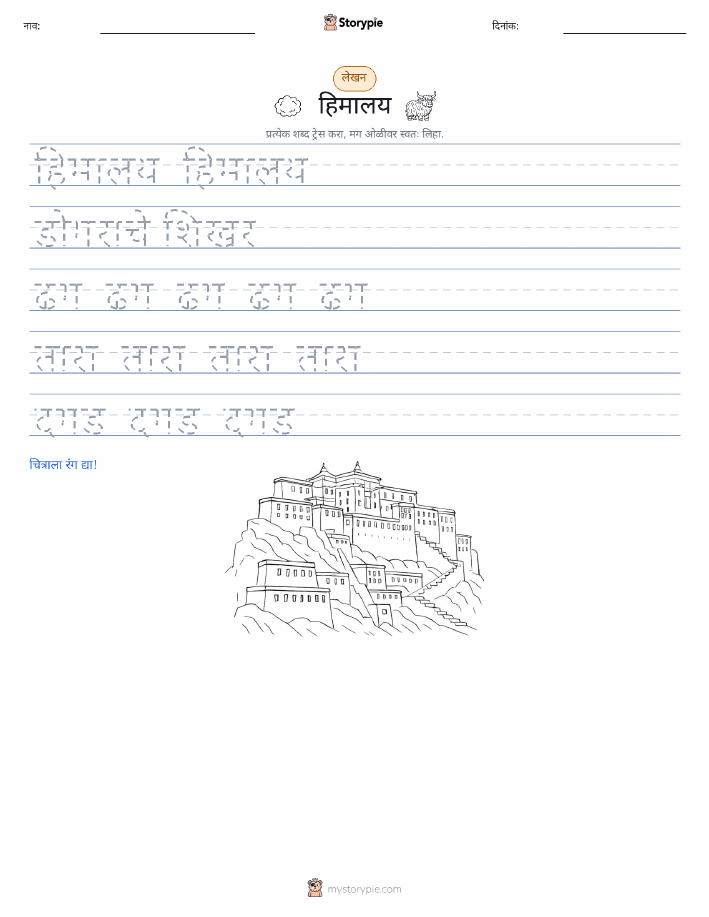 नाव:
Storypie
दिनांक:
लेखन
हिमालय
प्रत्येक शब्द ट्रेस करा, मग ओळीवर स्वतः लिहा.
हिमालय हिमालय
डोंगराचे शिखर
ढग ढग ढग ढग ढग
तारा तारा तारा तारा
दगड दगड दगड
चित्राला रंग द्या!
mystorypie.com